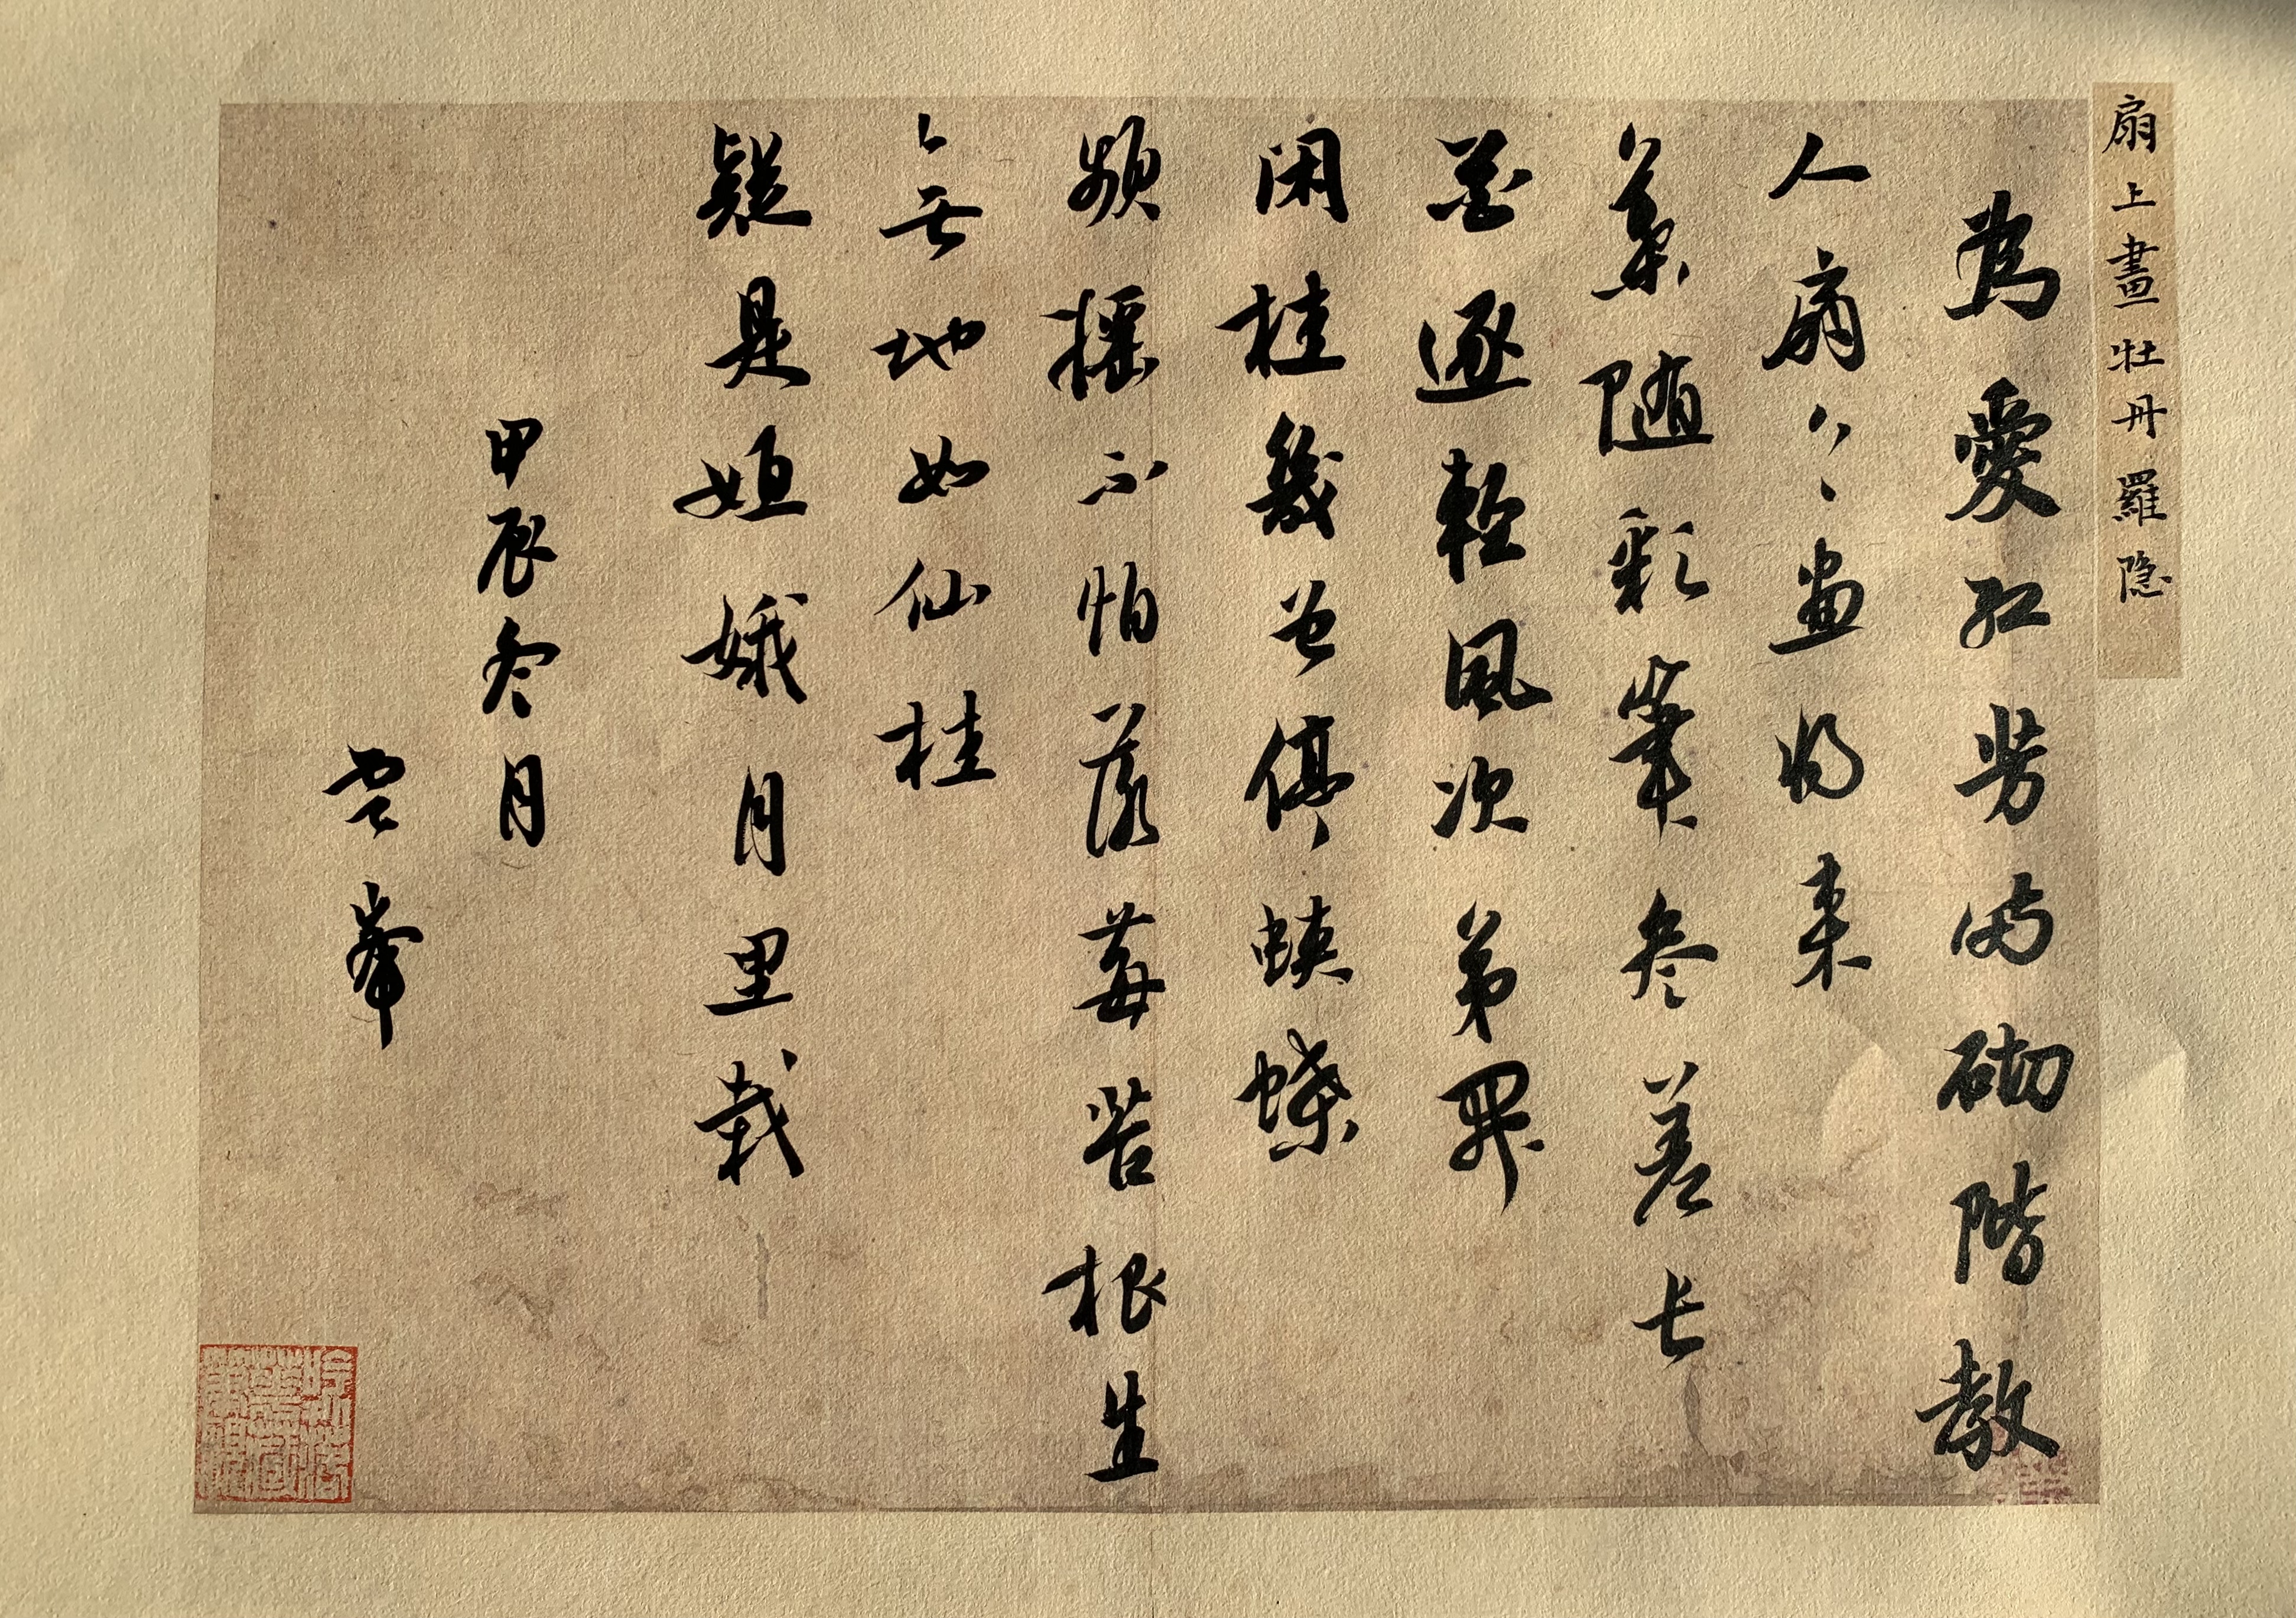 扇上畫牡丹 羅隐
為愛紅芳滿砌階教
人扇上画将来
葉随彩筆参差长
花逐輕風次第開
闲挂幾曾停蛺蝶
頻摇不怕落莓苔根生
無地如仙桂
疑是姮娥月里栽
甲辰冬月
雲峯